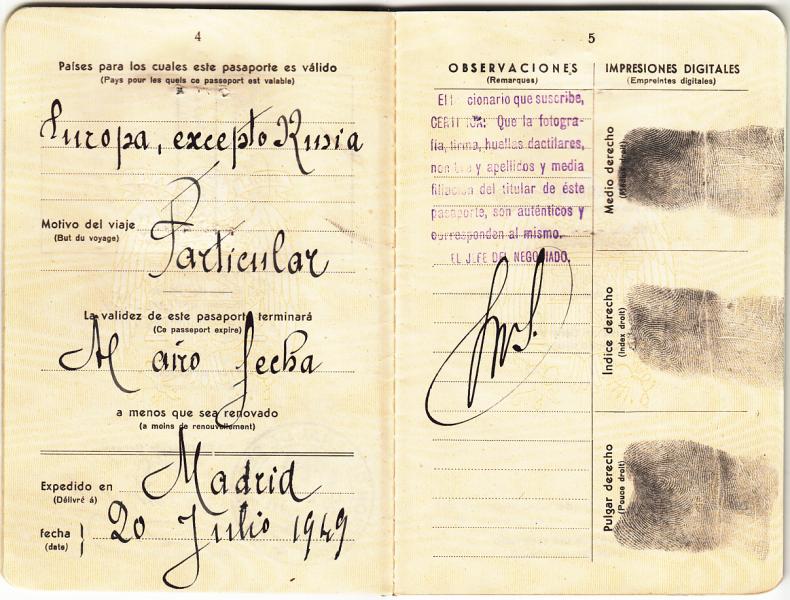 4
Países para los cuales este pasaporte es válido
(Pays pour les quels ce passeport est valable)
Europa, excepto Rusia
Motivo del viaje
(But du voyage)
Particular
La validez de este pasaporte terminará
(Ce passeport expire)
Al año fecha
a menos que sea renovado
(a moins de renouvellement)
Expedido en
(Délivré á)
Madrid
fecha
(date)
20 Julio 1949
5
OBSERVACIONES
(Remarques)
El cionario que suscribe,
CERTIFICA: Que la fotogra-
fía, firma, huellas dactilares,
nombre y apellidos y media
filiación del titular de éste
pasaporte, son auténticos y
corresponden al mismo.
EL JEFE DEL NEGOCIADO,
IMPRESIONES DIGITALES
(Empreintes digitales)
Medio derecho
Indice derecho
(Index droit)
Pulgar derecho
(Pouce droit)